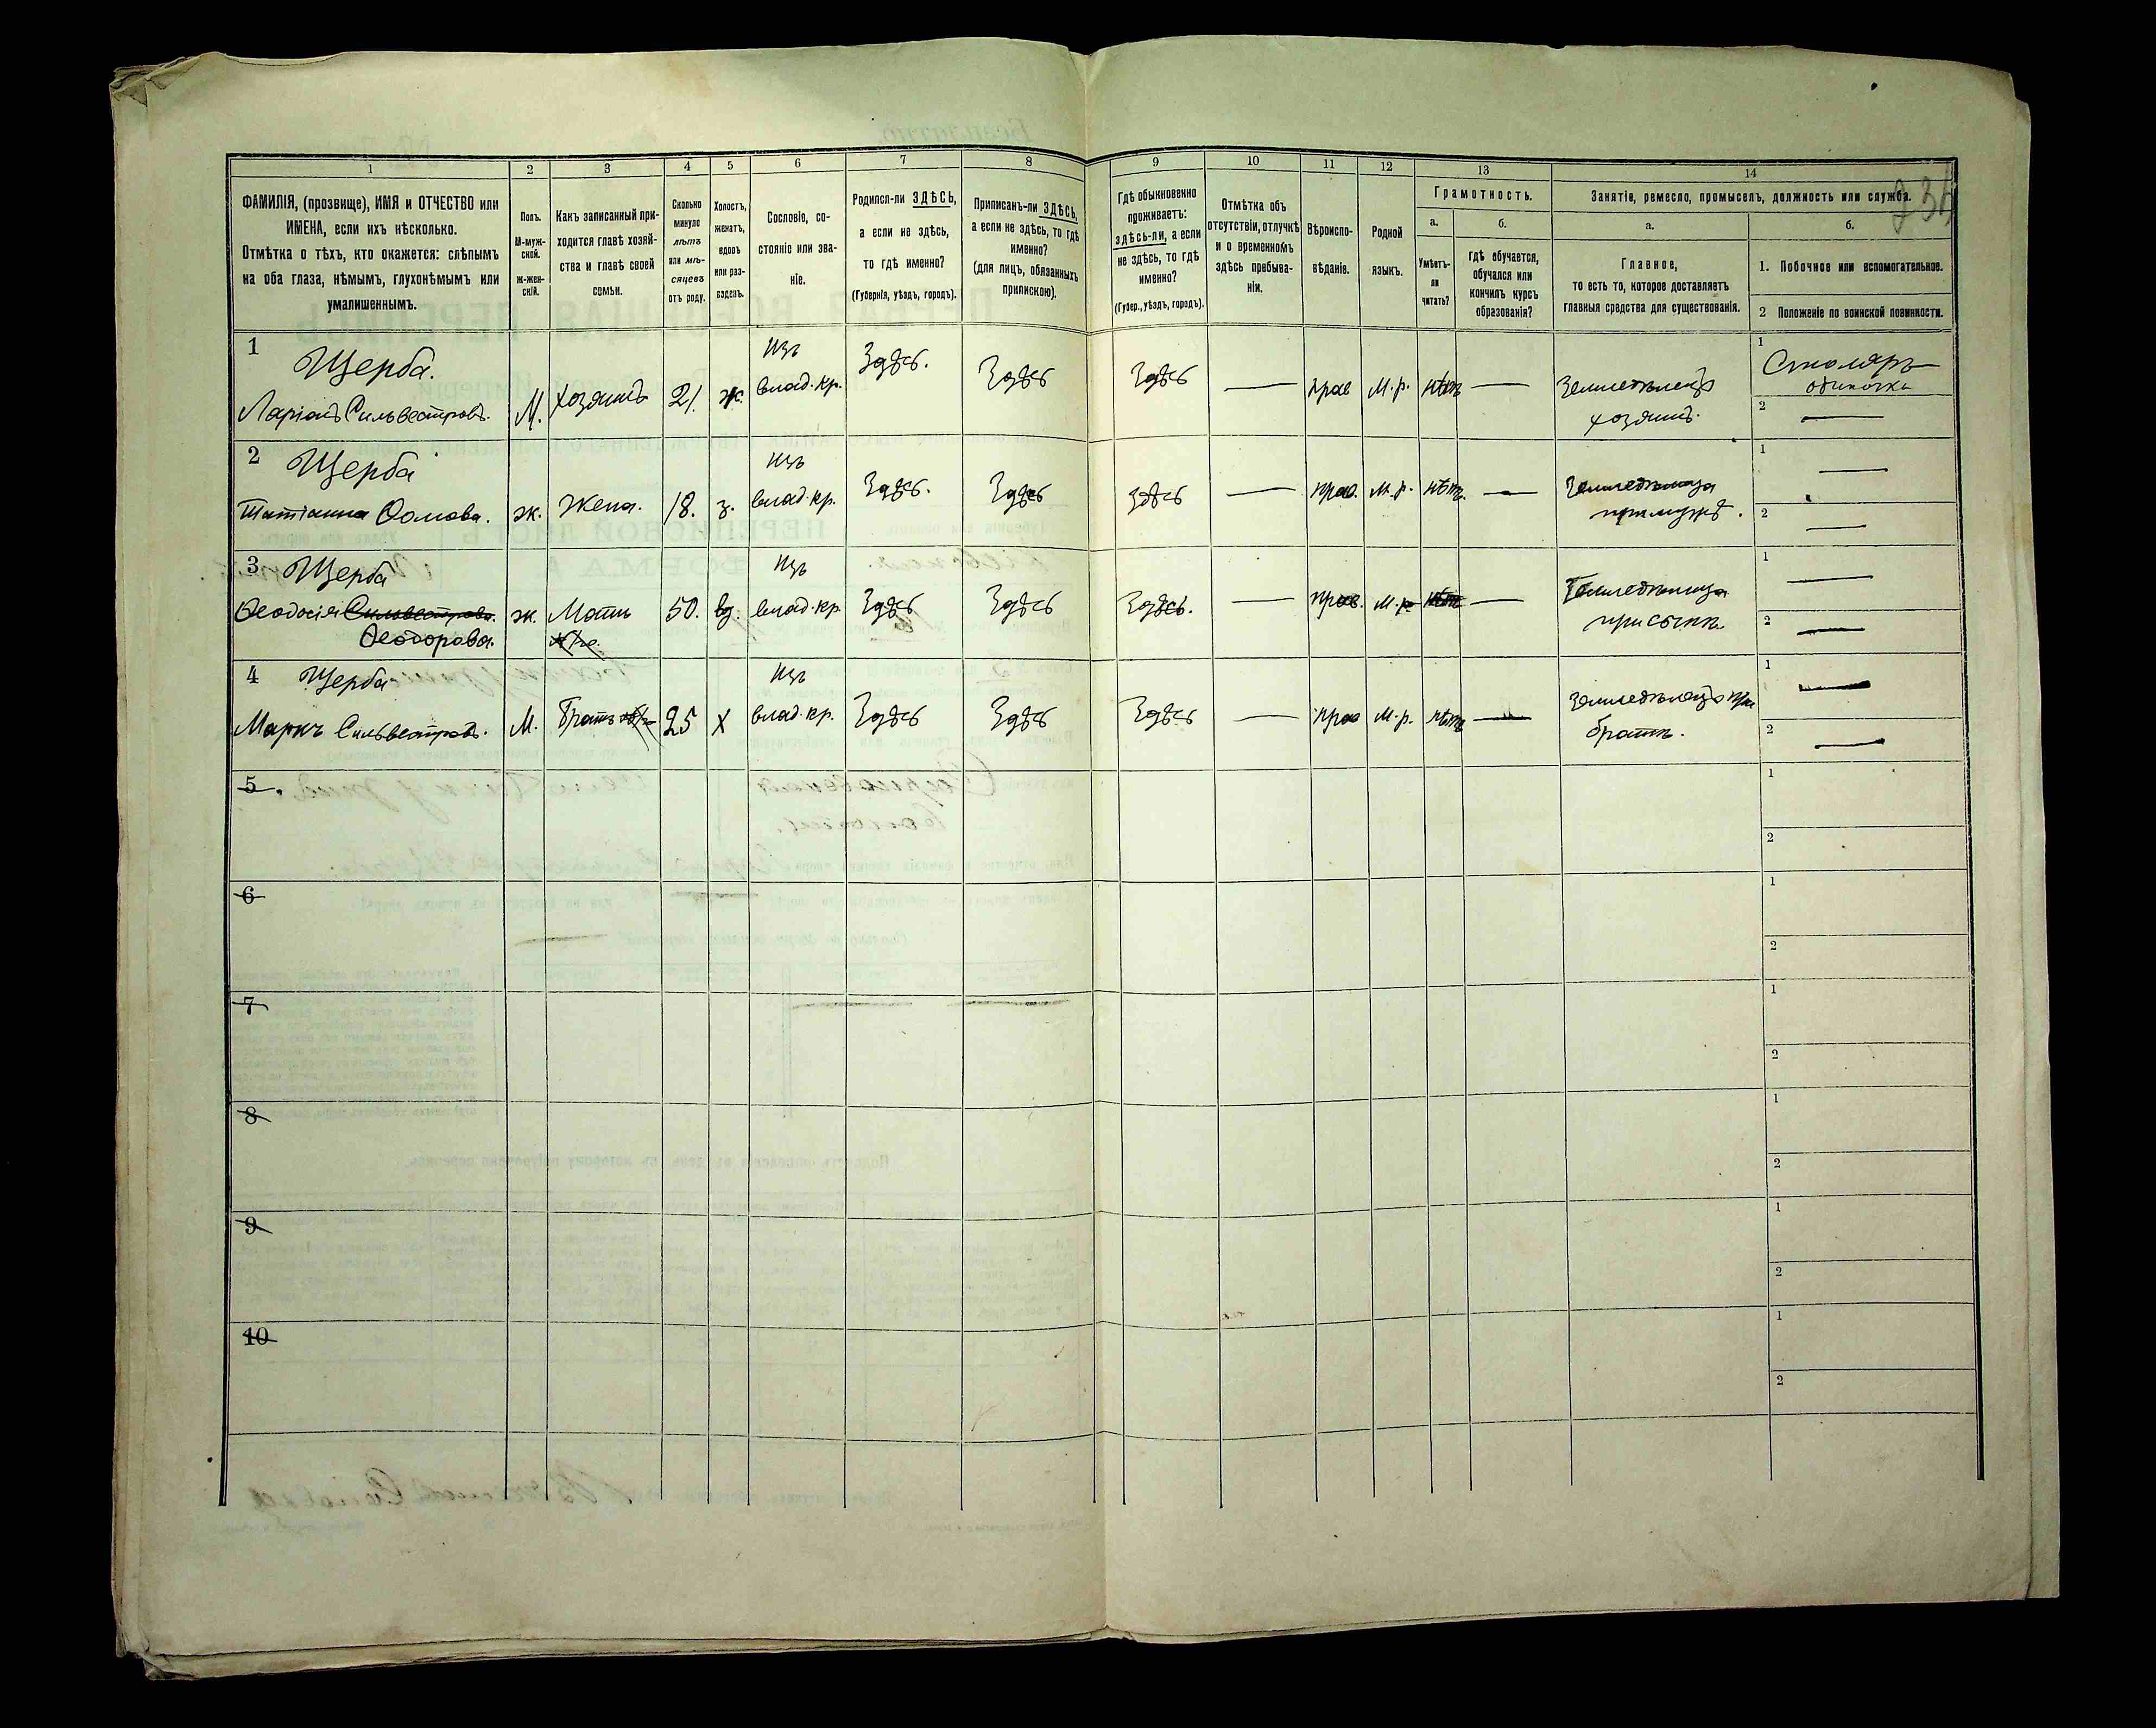 235
1 2 3 4 5 6 7 8 9 10 11 12 13 14
ФАМИЛІЯ, (прозвище), ИМЯ и ОТЧЕСТВО или
ИМЕНА, если ихъ нѣсколько.
Отмѣтка о тѣхъ, кто окажется: слѣпымъ
на оба глаза, нѣмымъ, глухонѣмымъ или
умалишеннымъ.
Полъ.
М-муж-
ской.
Ж-жен-
скій.
Какъ записанный при-
ходится главѣ хозяй-
ства и главѣ своей
семьи.
Сколько
минуло
лѣтъ
или мѣ-
сяцевъ
отъ роду.
Холостъ,
женатъ,
вдовъ
или раз-
веденъ.
Сословіе, со-
стояніе или зва-
ніе.
Родился-ли ЗДѢСЬ,
а если не здѣсь,
то гдѣ именно?
(Губернія, уѣздъ, городъ).
Приписанъ-ли ЗДѢСЬ,
а если не здѣсь, то гдѣ
именно?
(для лицъ, обязанныхъ
припискою).
Гдѣ обыкновенно
проживаетъ:
здѣсь-ли, а если
не здѣсь, то гдѣ
именно?
(Губер., уѣздъ, городъ).
Отмѣтка объ
отсутствіи, отлучкѣ
и о временномъ
здѣсь пребыва-
ніи.
Вѣроиспо-
вѣданіе.
Родной
языкъ.
Грамотность.
а.
Умѣетъ-
ли
читать?
б.
гдѣ обучается,
обучался или
кончилъ курсъ
образованія?
Занятіе, ремесло, промыселъ, должность или служба.
а.
Главное,
то есть то, которое доставляетъ
главныя средства для существованія.
б.
1. Побочное или вспомогательное.
2 Положеніе по воинской повинности.
1 Щерба. Изъ Здѣсь. 1 Столяръ
одиночка
Ларіонъ Сильвестровъ. М. Хозяинъ 21. ж. влад. кр. Здѣсь Здѣсь — прав М.р. нѣтъ — Земледѣлецъ
хозяинъ. 2 —
2 Щерба Изъ 1 —
Татіанна Ѳомова. ж. Жена. 18. з. влад. кр. Здѣсь. Здѣсь Здѣсь — прав. М.р. нѣтъ. — Земледѣлица
при мужѣ. 2 —
3 Щерба Изъ 1 —
Ѳеодосія Сильвестрова. ж. Мать 50. вд. влад. кр Здѣсь Здѣсь Здѣсь. — прав. М.р. нѣтъ — Земледѣлица
Ѳеодорова. при сынѣ. 2 —
4 Щерба Изъ 1 —
Маркъ Сильвестровъ. М. Братъ 25 х влад. кр. Здѣсь Здѣсь Здѣсь — прав М.р. нѣтъ — Земледѣлецъ при
братѣ. 2 —
5. 1
2
6 1
2
7 1
2
8 1
2
9 1
2
10 1
2